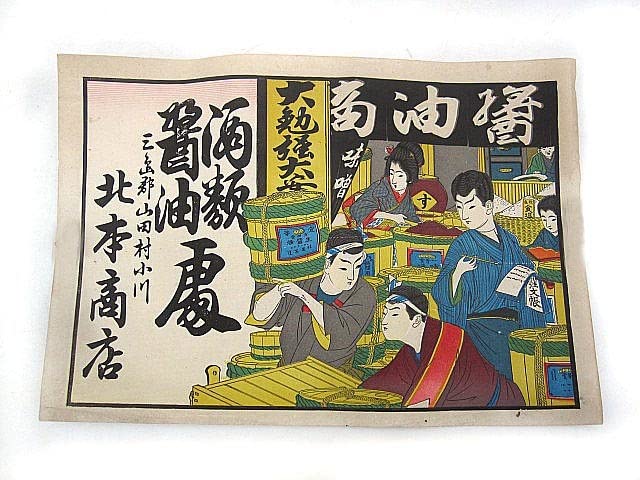 酒類
醤油
處
三島郡山田村小川
北本商店
大勉強大安
醤油商
味噌
す
注文帳